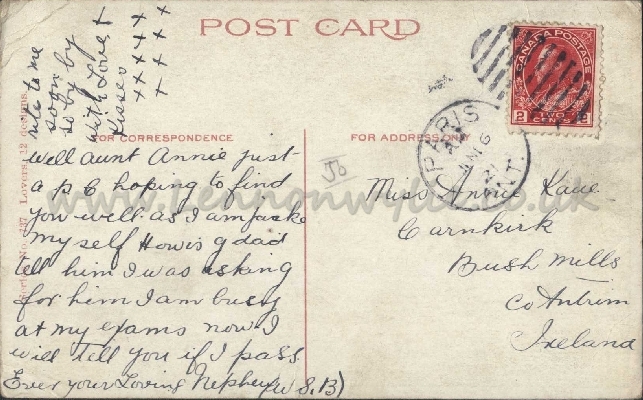 POST CARD
rite to me
soon by
so by by
with Love &
Kisses
FOR CORRESPONDENCE
well aunt Annie just
a p c hoping to find
you well as I am
my self How is g dad
tell him I was asking
for him I am busy
at my exams now I
will tell you if I pass
Ever your Loving Nephew (W S.B)
Series No. 237 Lovers, 12 designs.
50
CANADA POSTAGE
2 TWO CENTS 2
PARIS
AM
6
ONT.
FOR ADDRESS ONLY
Miss Annie Kane
Carnkirk
Bush Mills
Co Antrim
Ireland
www.lennonwylie.co.uk